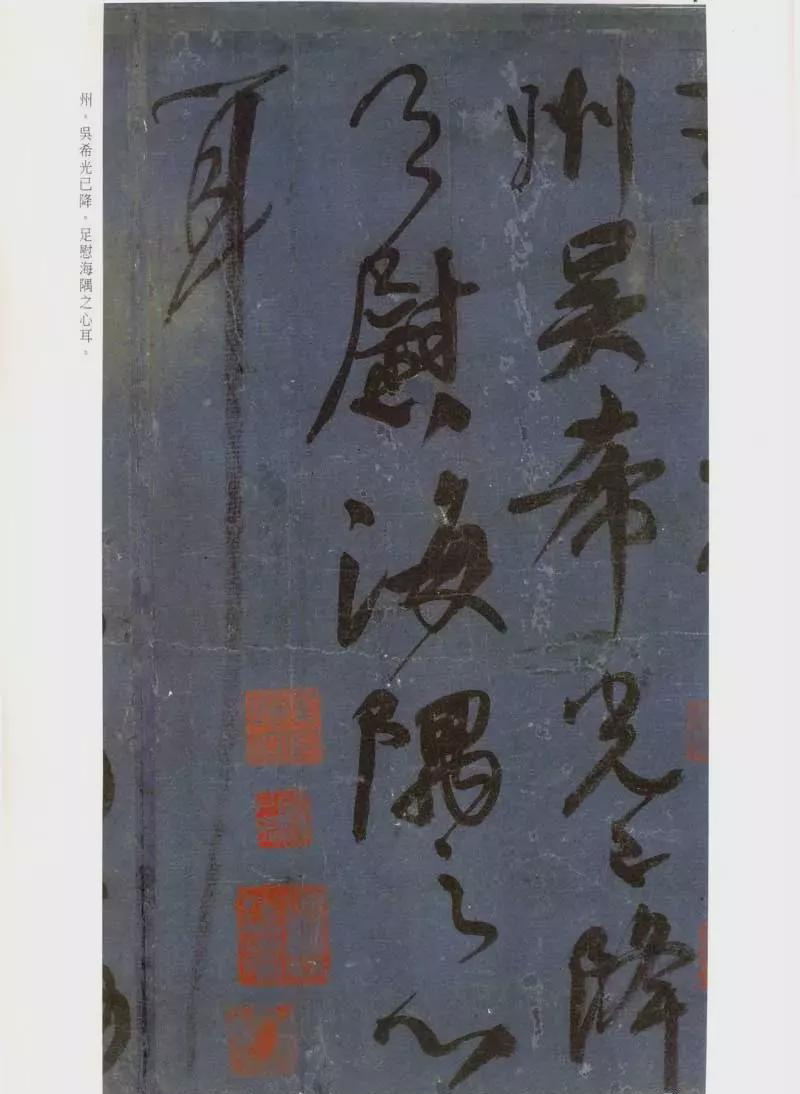 州吳希光已降
足慰海隅之心
耳
州。吳希光已降。足慰海隅之心耳。